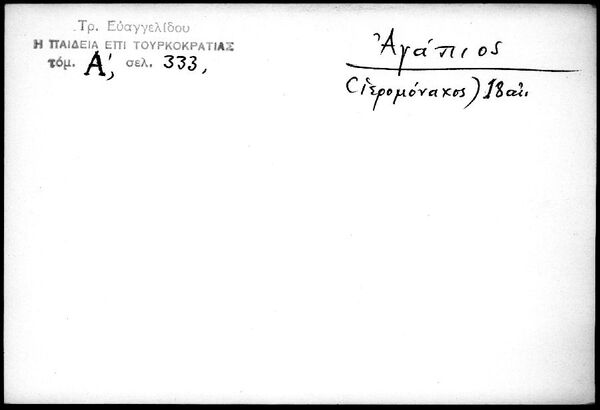 Τρ. Εὐαγγελίδου
Η ΠΑΙΔΕΙΑ ΕΠΙ ΤΟΥΡΚΟΚΡΑΤΙΑΣ
τόμ. Α΄, σελ. 333,
Ἀγάπιος
(ἱερομόναχος) 18 αἰ.